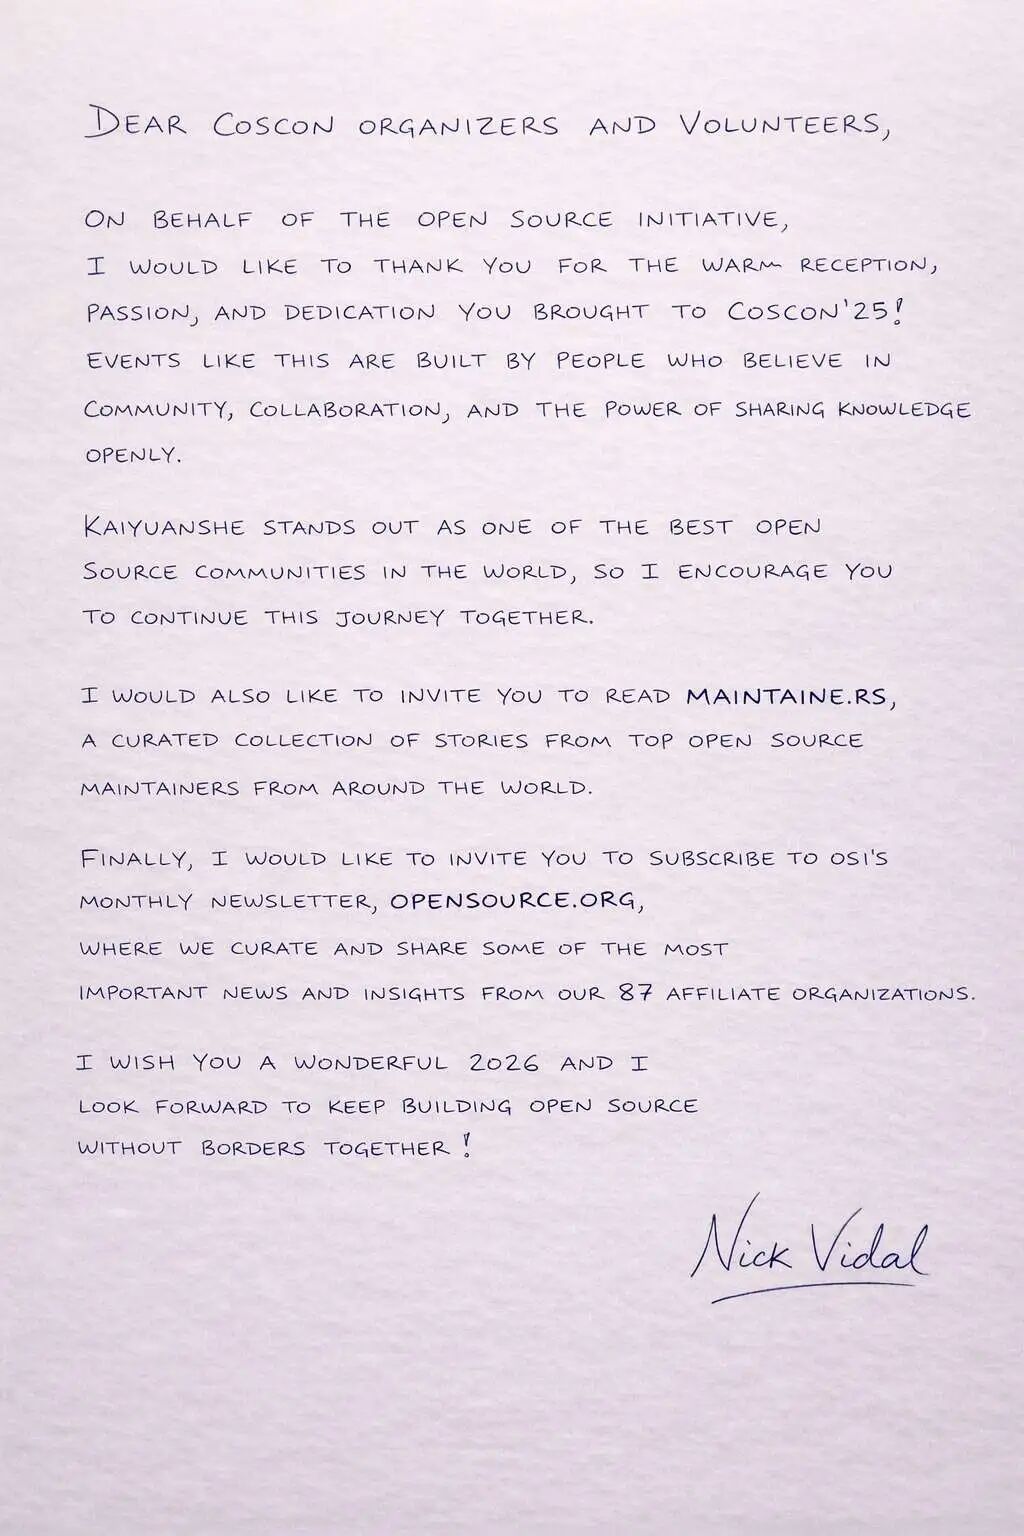 DEAR COSCON ORGANIZERS AND VOLUNTEERS,
ON BEHALF OF THE OPEN SOURCE INITIATIVE,
I WOULD LIKE TO THANK YOU FOR THE WARM RECEPTION,
PASSION, AND DEDICATION YOU BROUGHT TO COSCON'25!
EVENTS LIKE THIS ARE BUILT BY PEOPLE WHO BELIEVE IN
COMMUNITY, COLLABORATION, AND THE POWER OF SHARING KNOWLEDGE
OPENLY.
KAIYUANSHE STANDS OUT AS ONE OF THE BEST OPEN
SOURCE COMMUNITIES IN THE WORLD, SO I ENCOURAGE YOU
TO CONTINUE THIS JOURNEY TOGETHER.
I WOULD ALSO LIKE TO INVITE YOU TO READ MAINTAINE.RS,
A CURATED COLLECTION OF STORIES FROM TOP OPEN SOURCE
MAINTAINERS FROM AROUND THE WORLD.
FINALLY, I WOULD LIKE TO INVITE YOU TO SUBSCRIBE TO OSI'S
MONTHLY NEWSLETTER, OPENSOURCE.ORG,
WHERE WE CURATE AND SHARE SOME OF THE MOST
IMPORTANT NEWS AND INSIGHTS FROM OUR 87 AFFILIATE ORGANIZATIONS.
I WISH YOU A WONDERFUL 2026 AND I
LOOK FORWARD TO KEEP BUILDING OPEN SOURCE
WITHOUT BORDERS TOGETHER!
Nick Vidal